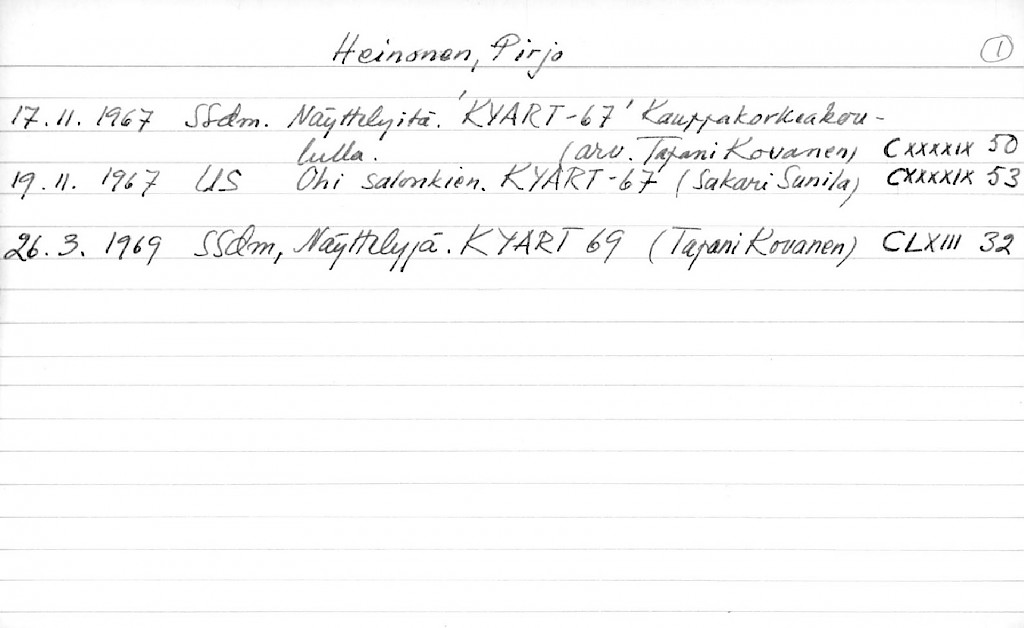 Heinonen, Pirjo 1
17.11. 1967 SSdm. Näyttelyitä. 'KYART-67' Kauppakorkeakou-
lulla. (arv. Tapani Kovanen) CXXXXIX 50
19.11. 1967 US Ohi salonkien. KYART-67 (Sakari Sunila) CXXXXIX 53
26.3. 1969 SSdm, Näyttelyjä. KYART 69 (Tapani Kovanen) CLXIII 32